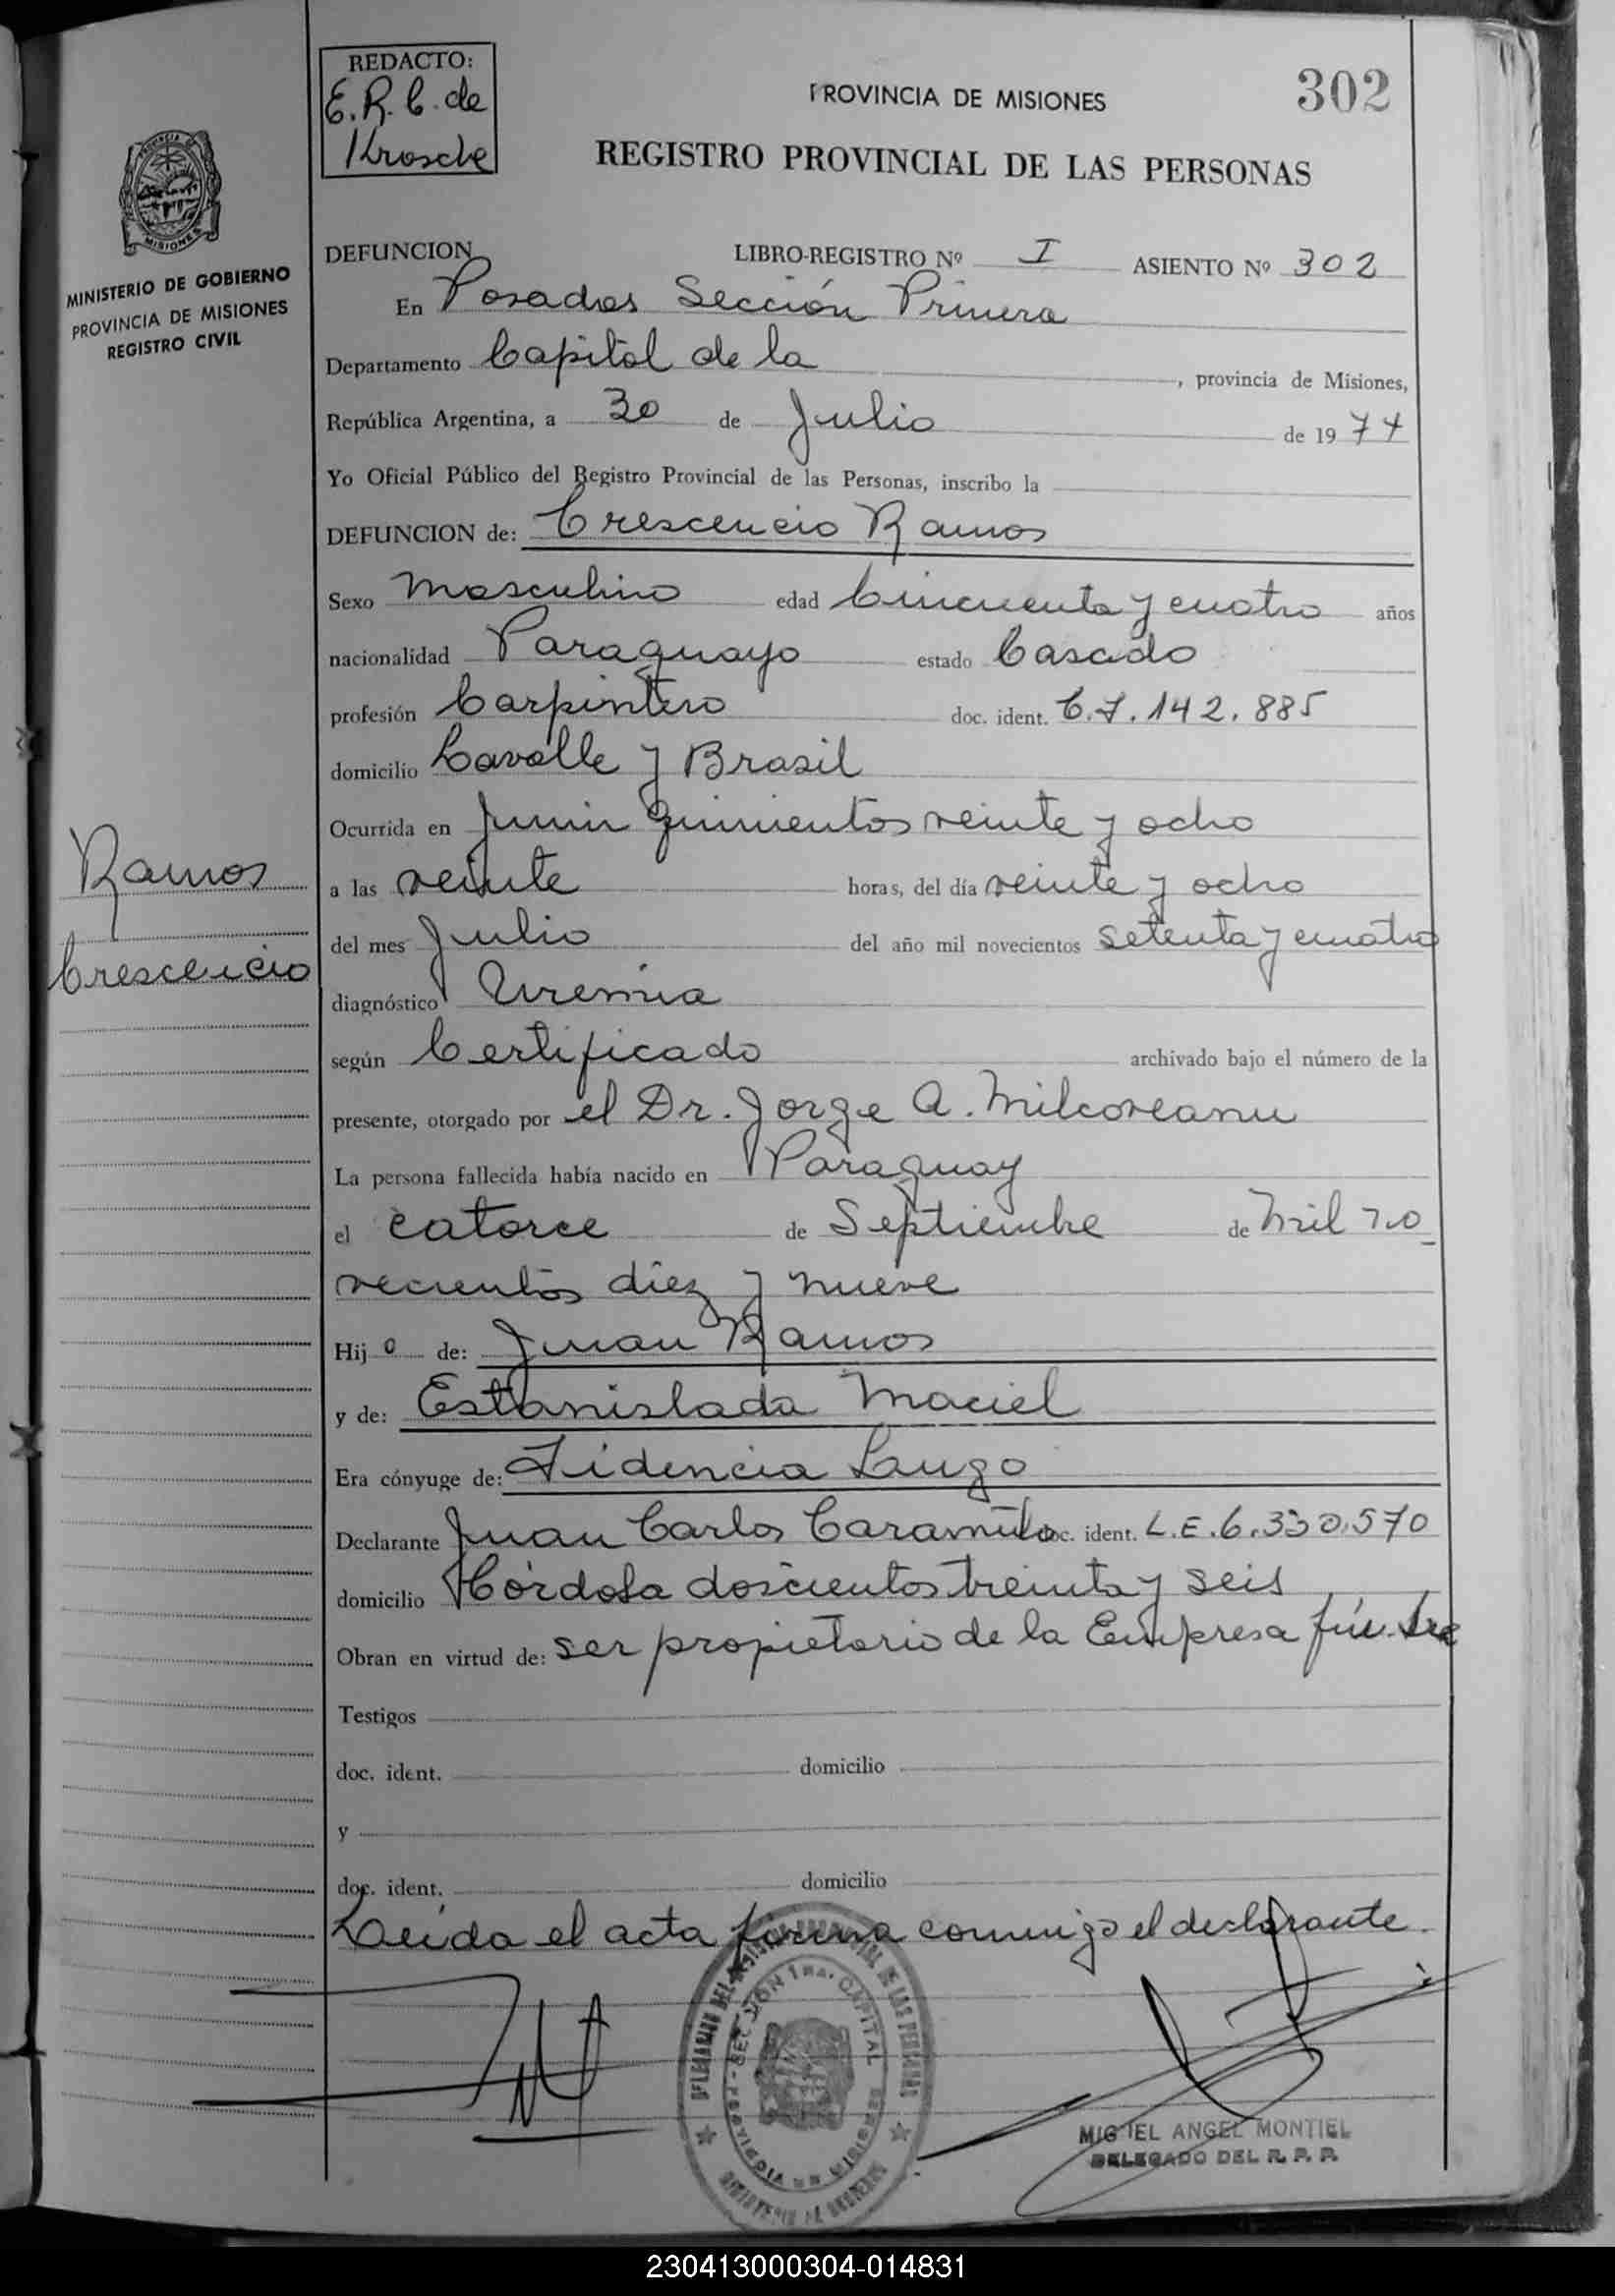 REDACTO:
E.R.C. de
Krosche
PROVINCIA DE MISIONES
302
REGISTRO PROVINCIAL DE LAS PERSONAS
MINISTERIO DE GOBIERNO
PROVINCIA DE MISIONES
REGISTRO CIVIL
DEFUNCION LIBRO-REGISTRO Nº I ASIENTO Nº 302
En Posadas Sección Primera
Departamento Capital de la , provincia de Misiones,
República Argentina, a 30 de Julio de 1974
Yo Oficial Público del Registro Provincial de las Personas, inscribo la
DEFUNCION de: Crescencio Ramos
Sexo Masculino edad Cincuenta y cuatro años
nacionalidad Paraguayo estado Casado
profesión Carpintero doc. ident. C.I. 142.885
domicilio Lavalle y Brasil
Ocurrida en Junin quinientos veinte y ocho
Ramos
Crescencio
a las veinte horas, del día veinte y ocho
del mes Julio del año mil novecientos setenta y cuatro
diagnóstico Uremia
según Certificado archivado bajo el número de la
presente, otorgado por el Dr. Jorge A. Milcoveanu
La persona fallecida había nacido en Paraguay
el catorce de Septiembre de Mil no
vecientos diez y nueve
Hijo de: Juan Ramos
y de: Estanislada Maciel
Era cónyuge de: Fidencia Lugo
Declarante Juan Carlos Caramuto doc. ident. L.E. 6.330.570
domicilio Córdoba doscientos treinta y seis
Obran en virtud de: ser propietario de la Empresa fúnebre
Testigos
doc. ident. domicilio
y
doc. ident. domicilio
Leida el acta firma conmigo el declarante.
SECCION 1ra. CAPITAL
MIGUEL ANGEL MONTIEL
DELEGADO DEL R. P. P.
230413000304-014831